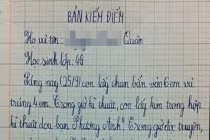 BẢN KIỂM ĐIỂM
Họ và tên: Quân
Học sinh lớp: 4G
Sáng nay (25/9) con lấy chun bắn vào 6 em và
trúng 4 em. Trong giờ kĩ thuật, con lấy kim trong hộp
kĩ thuật dọa bạn Phương Anh. Trong giờ đọc truyện,